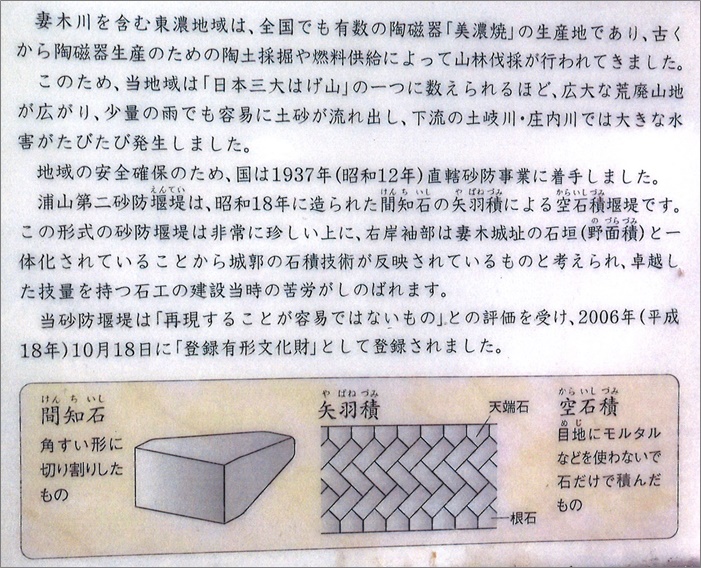 妻木川を含む東濃地域は、全国でも有数の陶磁器「美濃焼」の生産地であり、古く
から陶磁器生産のための陶土採掘や燃料供給によって山林伐採が行われてきました。
このため、当地域は「日本三大はげ山」の一つに数えられるほど、広大な荒廃山地
が広がり、少量の雨でも容易に土砂が流れ出し、下流の土岐川・庄内川では大きな水
害がたびたび発生しました。
地域の安全確保のため、国は1937年(昭和12年)直轄砂防事業に着手しました。
えんてい けんちいし やばねづみ からいしづみ
浦山第二砂防堰堤は、昭和18年に造られた間知石の矢羽積による空石積堰堤です。
のづらづみ
この形式の砂防堰堤は非常に珍しい上に、右岸袖部は妻木城址の石垣(野面積)と一
体化されていることから城郭の石積技術が反映されているものと考えられ、卓越し
た技量を持つ石工の建設当時の苦労がしのばれます。
当砂防堰堤は「再現することが容易ではないもの」との評価を受け、2006年(平成
18年)10月18日に「登録有形文化財」として登録されました。
けんちいし
間知石
角すい形に
切り割りした
もの
やばねづみ
矢羽積
天端石
根石
からいしづみ
空石積
めじ
目地にモルタル
などを使わないで
石だけで積んだ
もの